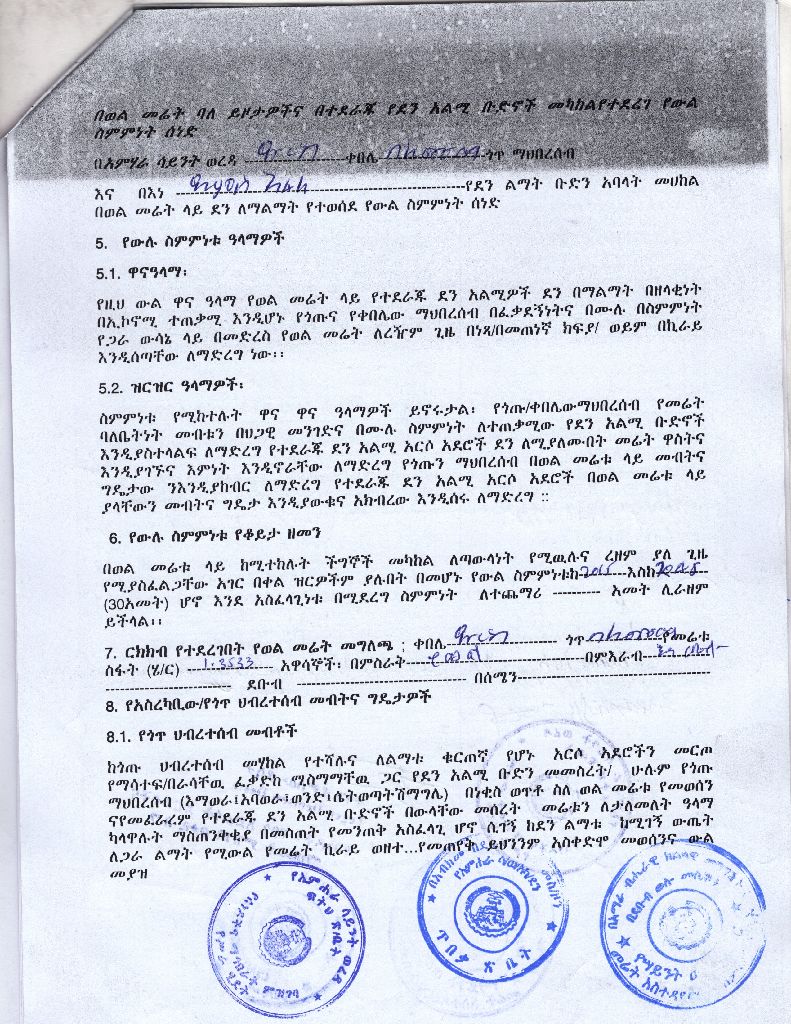 በወል መሬት ባለ ይዞታዎችና በተደራጁ የደን አልሚ ቡድኖች መካከልየተደረገ የውል
ስምምነት ሰነድ
በአምሃራ ሳይንት ወረዳ ---------------ቀበሌ ---------------ጎጥ ማህበረሰብ
እና በእነ ---------------የደን ልማት ቡድን አባላት መሀከል
በወል መሬት ላይ ደን ለማልማት የተወሰደ የውል ስምምነት ሰነድ
5. የውሉ ስምምነቱ ዓላማዎች
5.1. ዋናዓላማ፡
የዚህ ውል ዋና ዓላማ የወል መሬት ላይ የተደራጁ ደን አልሚዎች ደን በማልማት በዘላቂነት
በኢኮኖሚ ተጠቃሚ እንዲሆኑ የጎጡና የቀበሌው ማህበረሰብ በፈቃደኝነትና በሙሉ በስምምነት
የጋራ ውሳኔ ላይ በመድረስ የወል መሬት ለረዥም ጊዜ በነጻ/በመጠነኛ ክፍያ/ ወይም በኪራይ
እንዲሰጣቸው ለማድረግ ነው፡፡
5.2. ዝርዝር ዓላማዎች፡
ስምምነቱ የሚከተሉት ዋና ዋና ዓላማዎች ይኖሩታል፡ የጎጡ/ቀበሌውማህበረሰብ የመሬት
ባለቤትነት መብቱን በህጋዊ መንገድና በሙሉ ስምምነት ለተጠቃሚው የደን አልሚ ቡድኖች
እንዲያስተላልፍ ለማድረግ የተደራጁ ደን አልሚ አርሶ አደሮች ደን ለሚያለሙበት መሬት ዋስትና
እንዲያገኙና እምነት እንዲኖራቸው ለማድረግ የጎጡን ማህበረሰብ በወል መሬቱ ላይ መብትና
ግዴታው ንእንዲያከብር ለማድረግ የተደራጁ ደን አልሚ አርሶ አደሮች በወል መሬቱ ላይ
ያላቸውን መብትና ግዴታ እንዲያውቁና አክብረው እንዲሰሩ ለማድረግ ::
6. የውሉ ስምምነቱ የቆይታ ዘመን
በወል መሬቱ ላይ ከሚተከሉት ችግኞች መካከል ለጣውላነት የሚዉሉና ረዘም ያለ ጊዜ
የሚያስፈልጋቸው አገር በቀል ዝርዎችም ያሉበት በመሆኑ የውል ስምምነቱከ2015---እስከ2045
(30አመት) ሆኖ እንደ አስፈላጊነቱ በሚደረግ ስምምነት ለተጨማሪ ---------- አመት ሊራዘም
ይችላል፡፡
7. ርክክብ የተደረገበት የወል መሬት መግለጫ ; ቀበሌ--------------- ጎጥ---------------የመሬቱ
ስፋት (ሄ/ር) --1.3533-- አዋሳኞች፡ በምስራት---------------በምእራብ---------------
--------------- ደቡብ --------------- በሰሜን---------------
8. የአስረካቢው/የጎጥ ህብረተሰብ መብትና ግዴታዎች
8.1. የጎጥ ህብረተሰብ መብቶች
ከጎጡ ህብረተሰብ መሃከል የተሻሉና ለልማቱ ቁርጠኛ የሆኑ አርሶ አደሮችን መርጦ
የማሳተፍ/በራሳቸዉ ፈቃድከ ሚስማማቸዉ ጋር የደን አልሚ ቡድን መመስረት/ ሁሉም የጎጡ
ማህበረሰብ (አማወራ፤አባወራ፤ወንድ፤ሴትወጣትሽማግሌ) በነቂስ ወጥቶ ስለ ወል መሬቱ የመወሰን
ናየመፈራረም የተደራጁ ደን አልሚ ቡድኖች በውላቸው መሰረት መሬቱን ለታለመለት ዓላማ
ካላዋሉት ማስጠንቀቂያ በመስጠት የመንጠቅ አስፈላጊ ሆኖ ሲገኝ ከደን ልማቱ ከሚገኝ ውጤት
ለጋራ ልማት የሚውል የመሬት ኪራይ ወዘተ...የመጠየቅ ይህንንም አስቀድሞ መወሰንና ውል
መያዝ
የአምሐራ ሳይንት ወረዳ
ፍትህ ጽ/ቤት
ጥበቃ ጽ ቤት